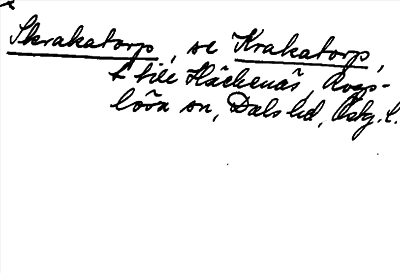 Skrakatorp, se Krakatorp,
t till Häckenäs, Rogs-
lösa sn, Dals hd, Östg. l.